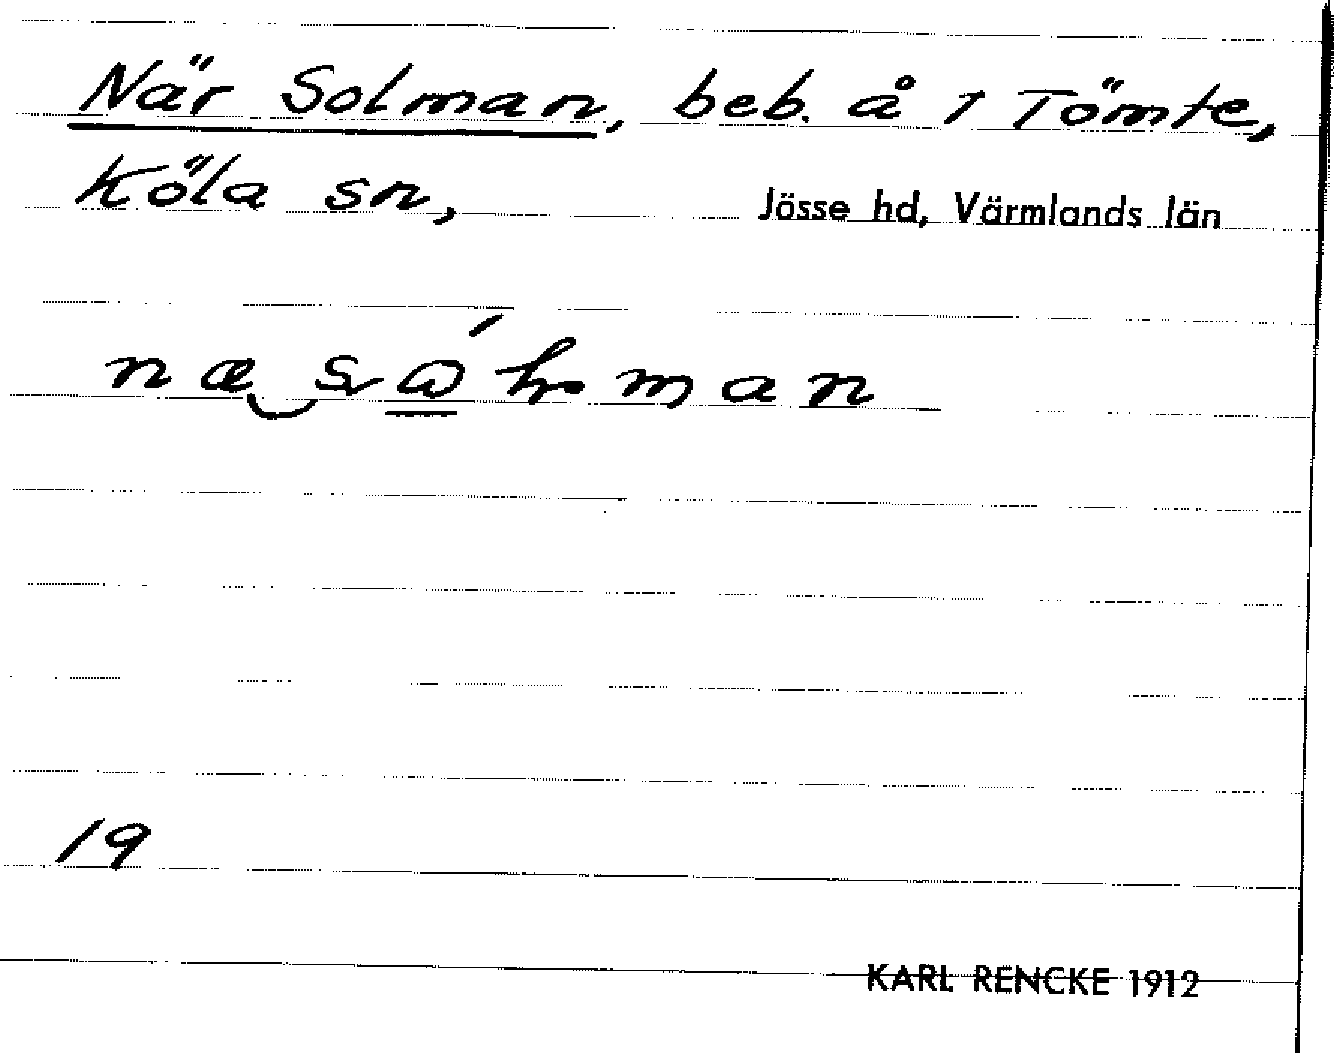 När Solman, beb. å 1 Tömte,
Köla sn, Jösse hd, Värmlands län
19
KARL RENCKE 1912